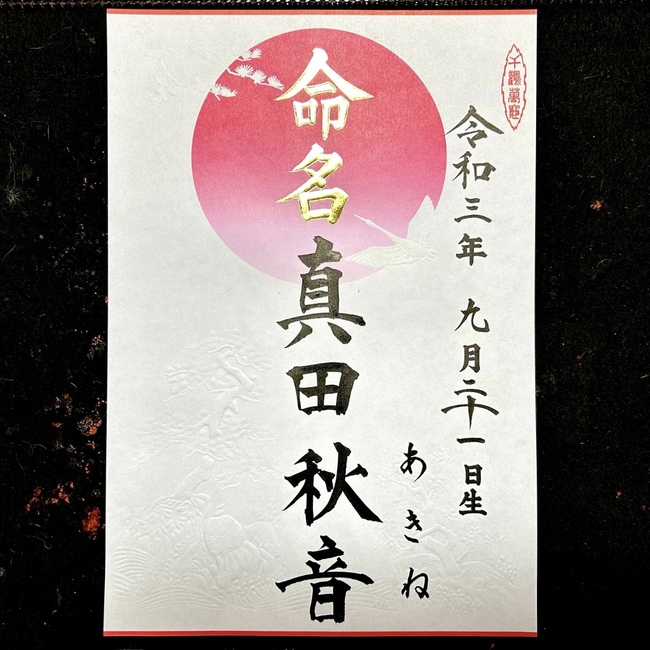 令和三年 九月二十一日生
命名 真田 秋音
あきね